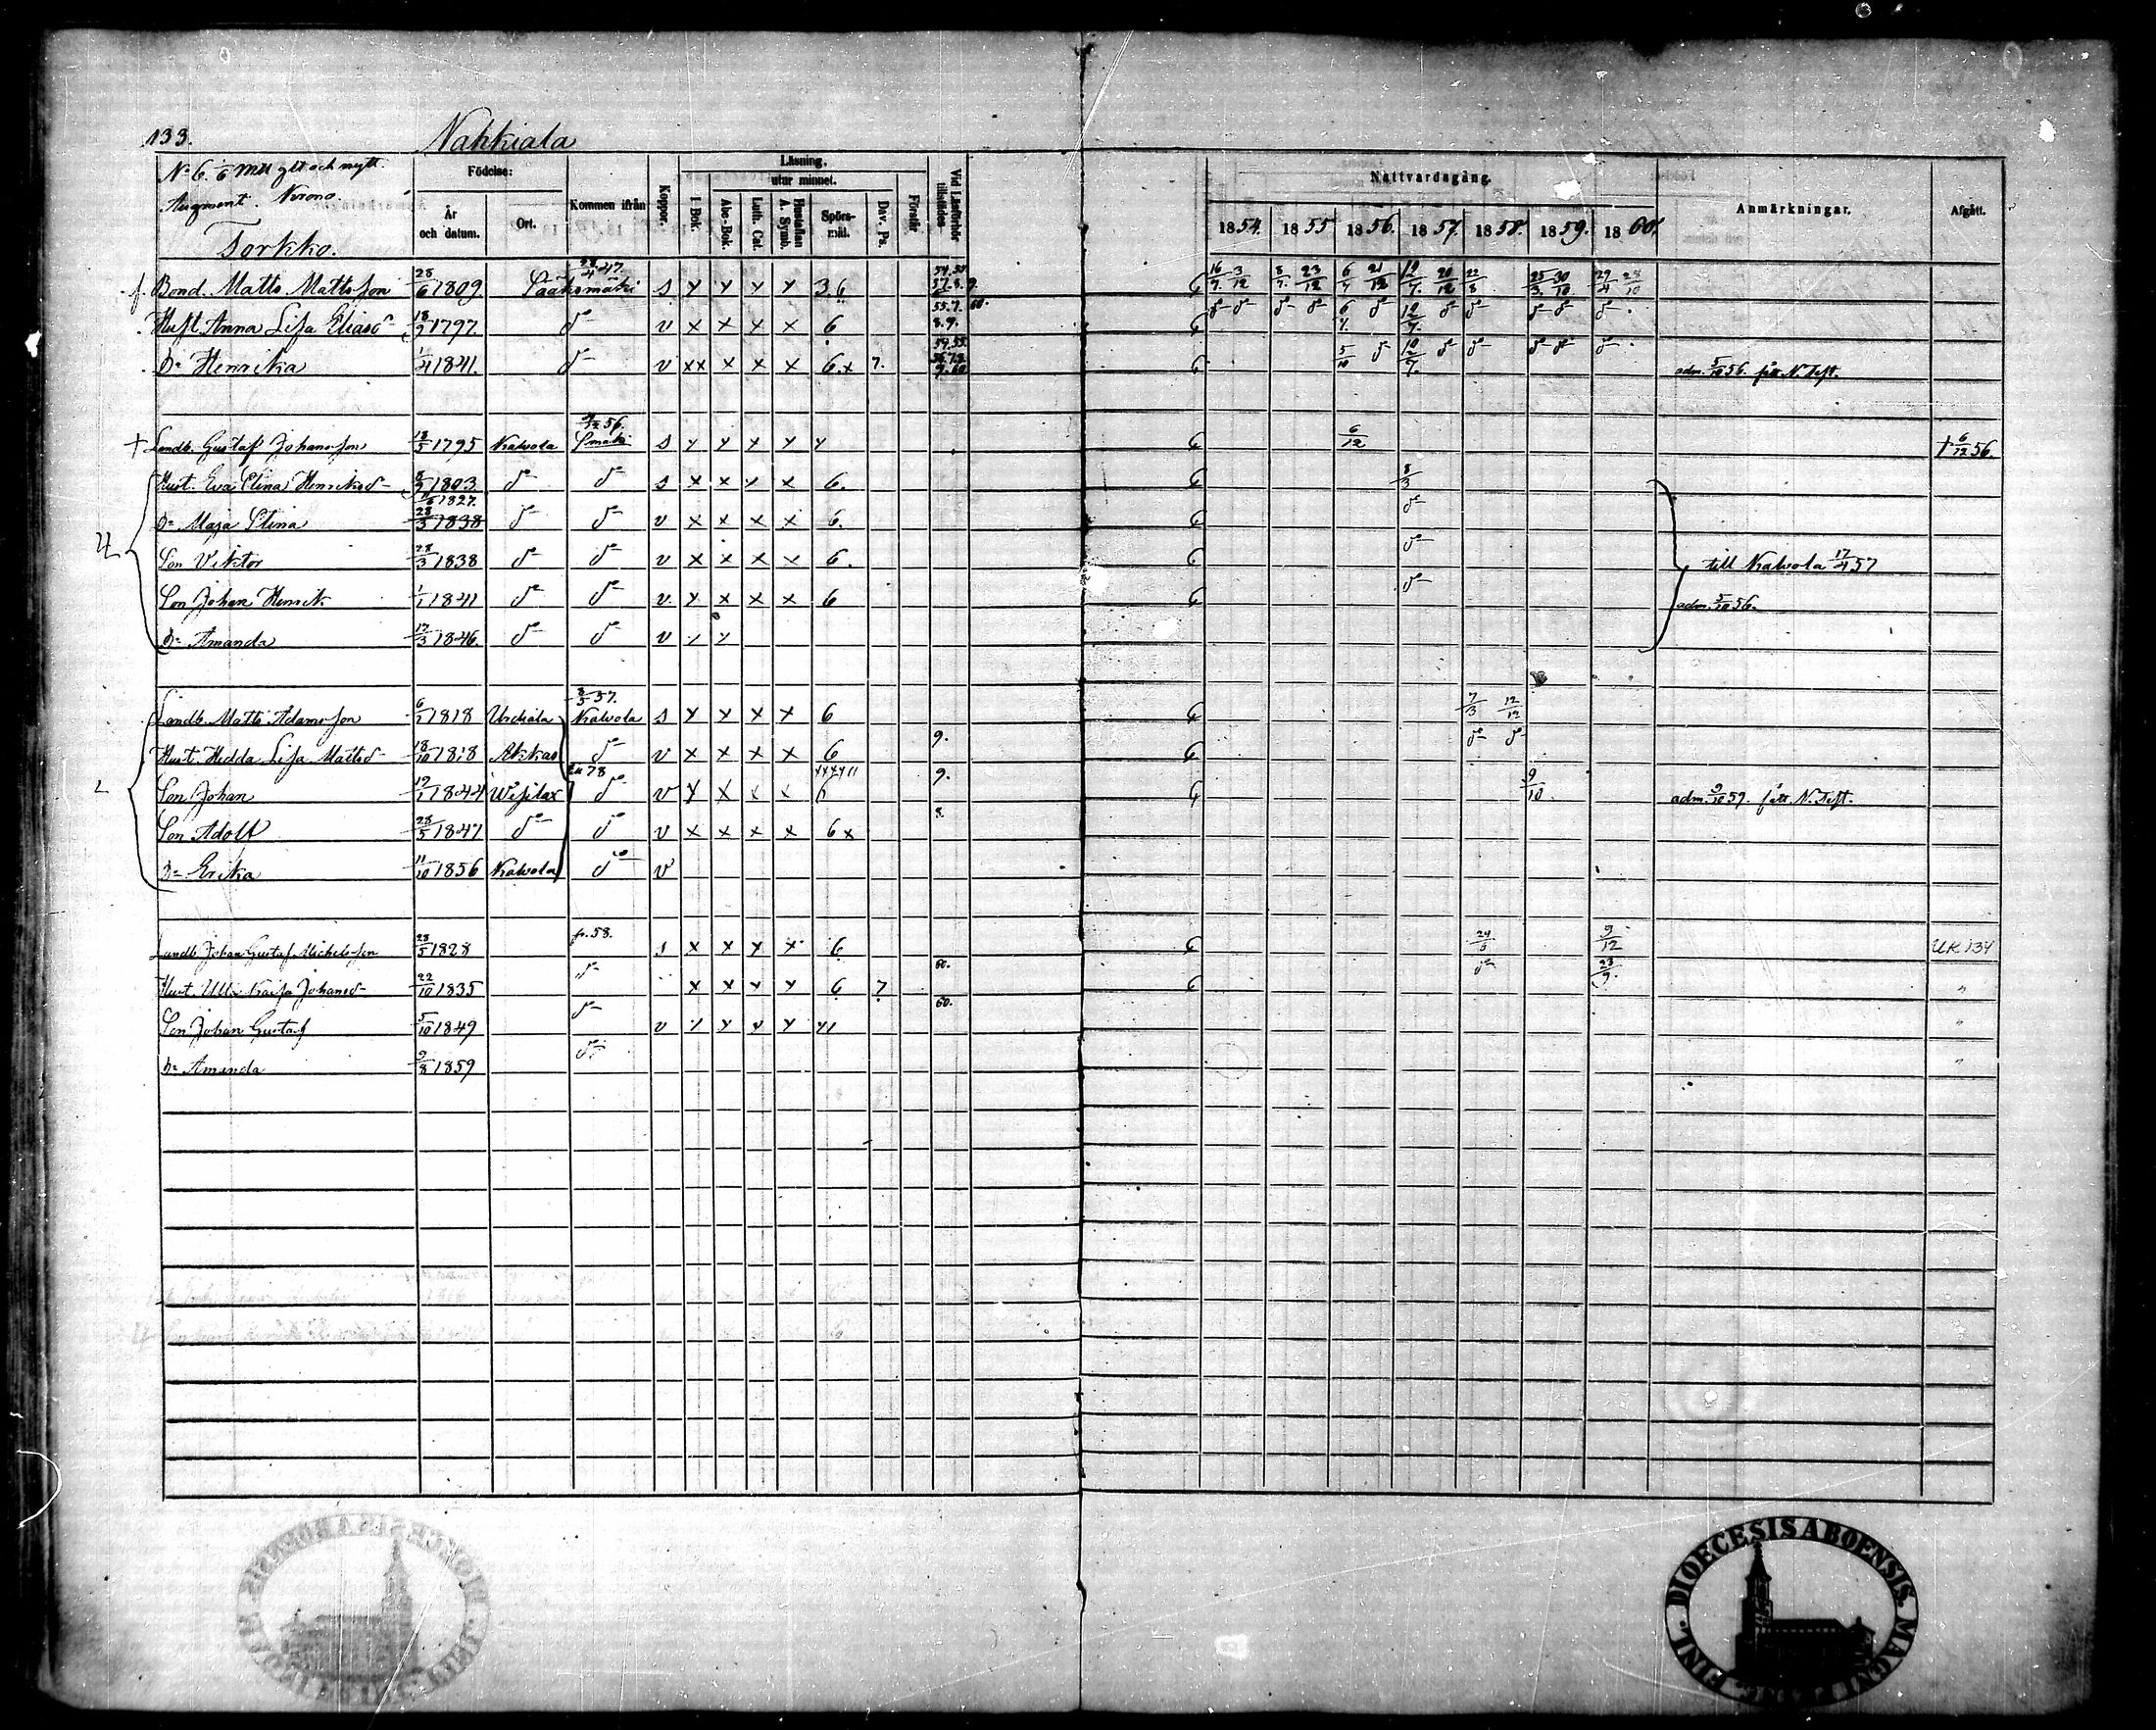 133. Nahkiala
No 6. 1/6 mtl och nytt
Augment. Krono.
Torkko.
Födelse:
År och datum.
Ort.
Kommen ifrån
Koppor.
Läsning.
I Bok.
utur minnet.
Abc-Bok.
Luth. Cat.
Hustaflan A. Symb.
Spörs-mål.
Dav. Ps.
Förstår
Vid Läsförhör tillstädes
Nattvardsgång.
1854. 1855 1856. 1857. 1858. 1859. 1860.
Anmärkningar.
Afgått.
Bond. Matts Mattsson 28/6 1809 Sääksmäki 47. s 3.6 16/7 3/12 8/7 23/12 6/7 21/12 12/7 20/12 22/8 25/3 30/10 29/4 28/10
Hust. Anna Lisa Eliasd 18/9 1797 do v x x x x 6
Dr Henrika 1/4 1841. do v xx x x x 6.x 7. adm. 5/10 56. fått N. Test.
† Landb. Gustaf Johansson 13/5 1795 Kalvola 56. Smäki s 6/12 † 6/12 56.
Hust. Eva Stina Henriksd 1803 do do s x x x x 6. 8/3
11/6 1827.
Dr Maja Stina 28/3 1838 do do v x x x x 6. do
Son Viktor 28/3 1838 do do v x x x x 6. do till Kalvola 17/4 57
Son Johan Henrik 1/1 1841 do do v. x x x x 6 do adm. 5/10 56.
Dr Amanda 17/3 1846. do do v
Landb. Matts Adamsson 6/1 1818 Urdiala 8/5 57. Kalvola s 6 7/3 12/12
Hust. Hedda Lisa Mattsd 18/10 1818 Akkas do v x x x x 6 9. do do
Son Johan 19/1 1844 Wesilax do v x x x x 9. 9/10. adm. 9/10 59. fått N. Test.
Son Adolf 28/5 1847 do do v x x x x 6 x 8.
Dr Erika 11/10 1856 Kalvola do v
Landb Johan Gustaf Michelsson 28/5 1828 fr. 58. s x x x x 6 9/12 UK 134
Hust. Ulla Kaisa Johansd 22/10 1835 do x x x x 6 7 60. do 23/9. "
Son Johan Gustaf 5/10 1849 do v 60. "
Dr Amanda 9/8 1859 do "
DIOECESIS ABOENSIS. MAGNI FINL.